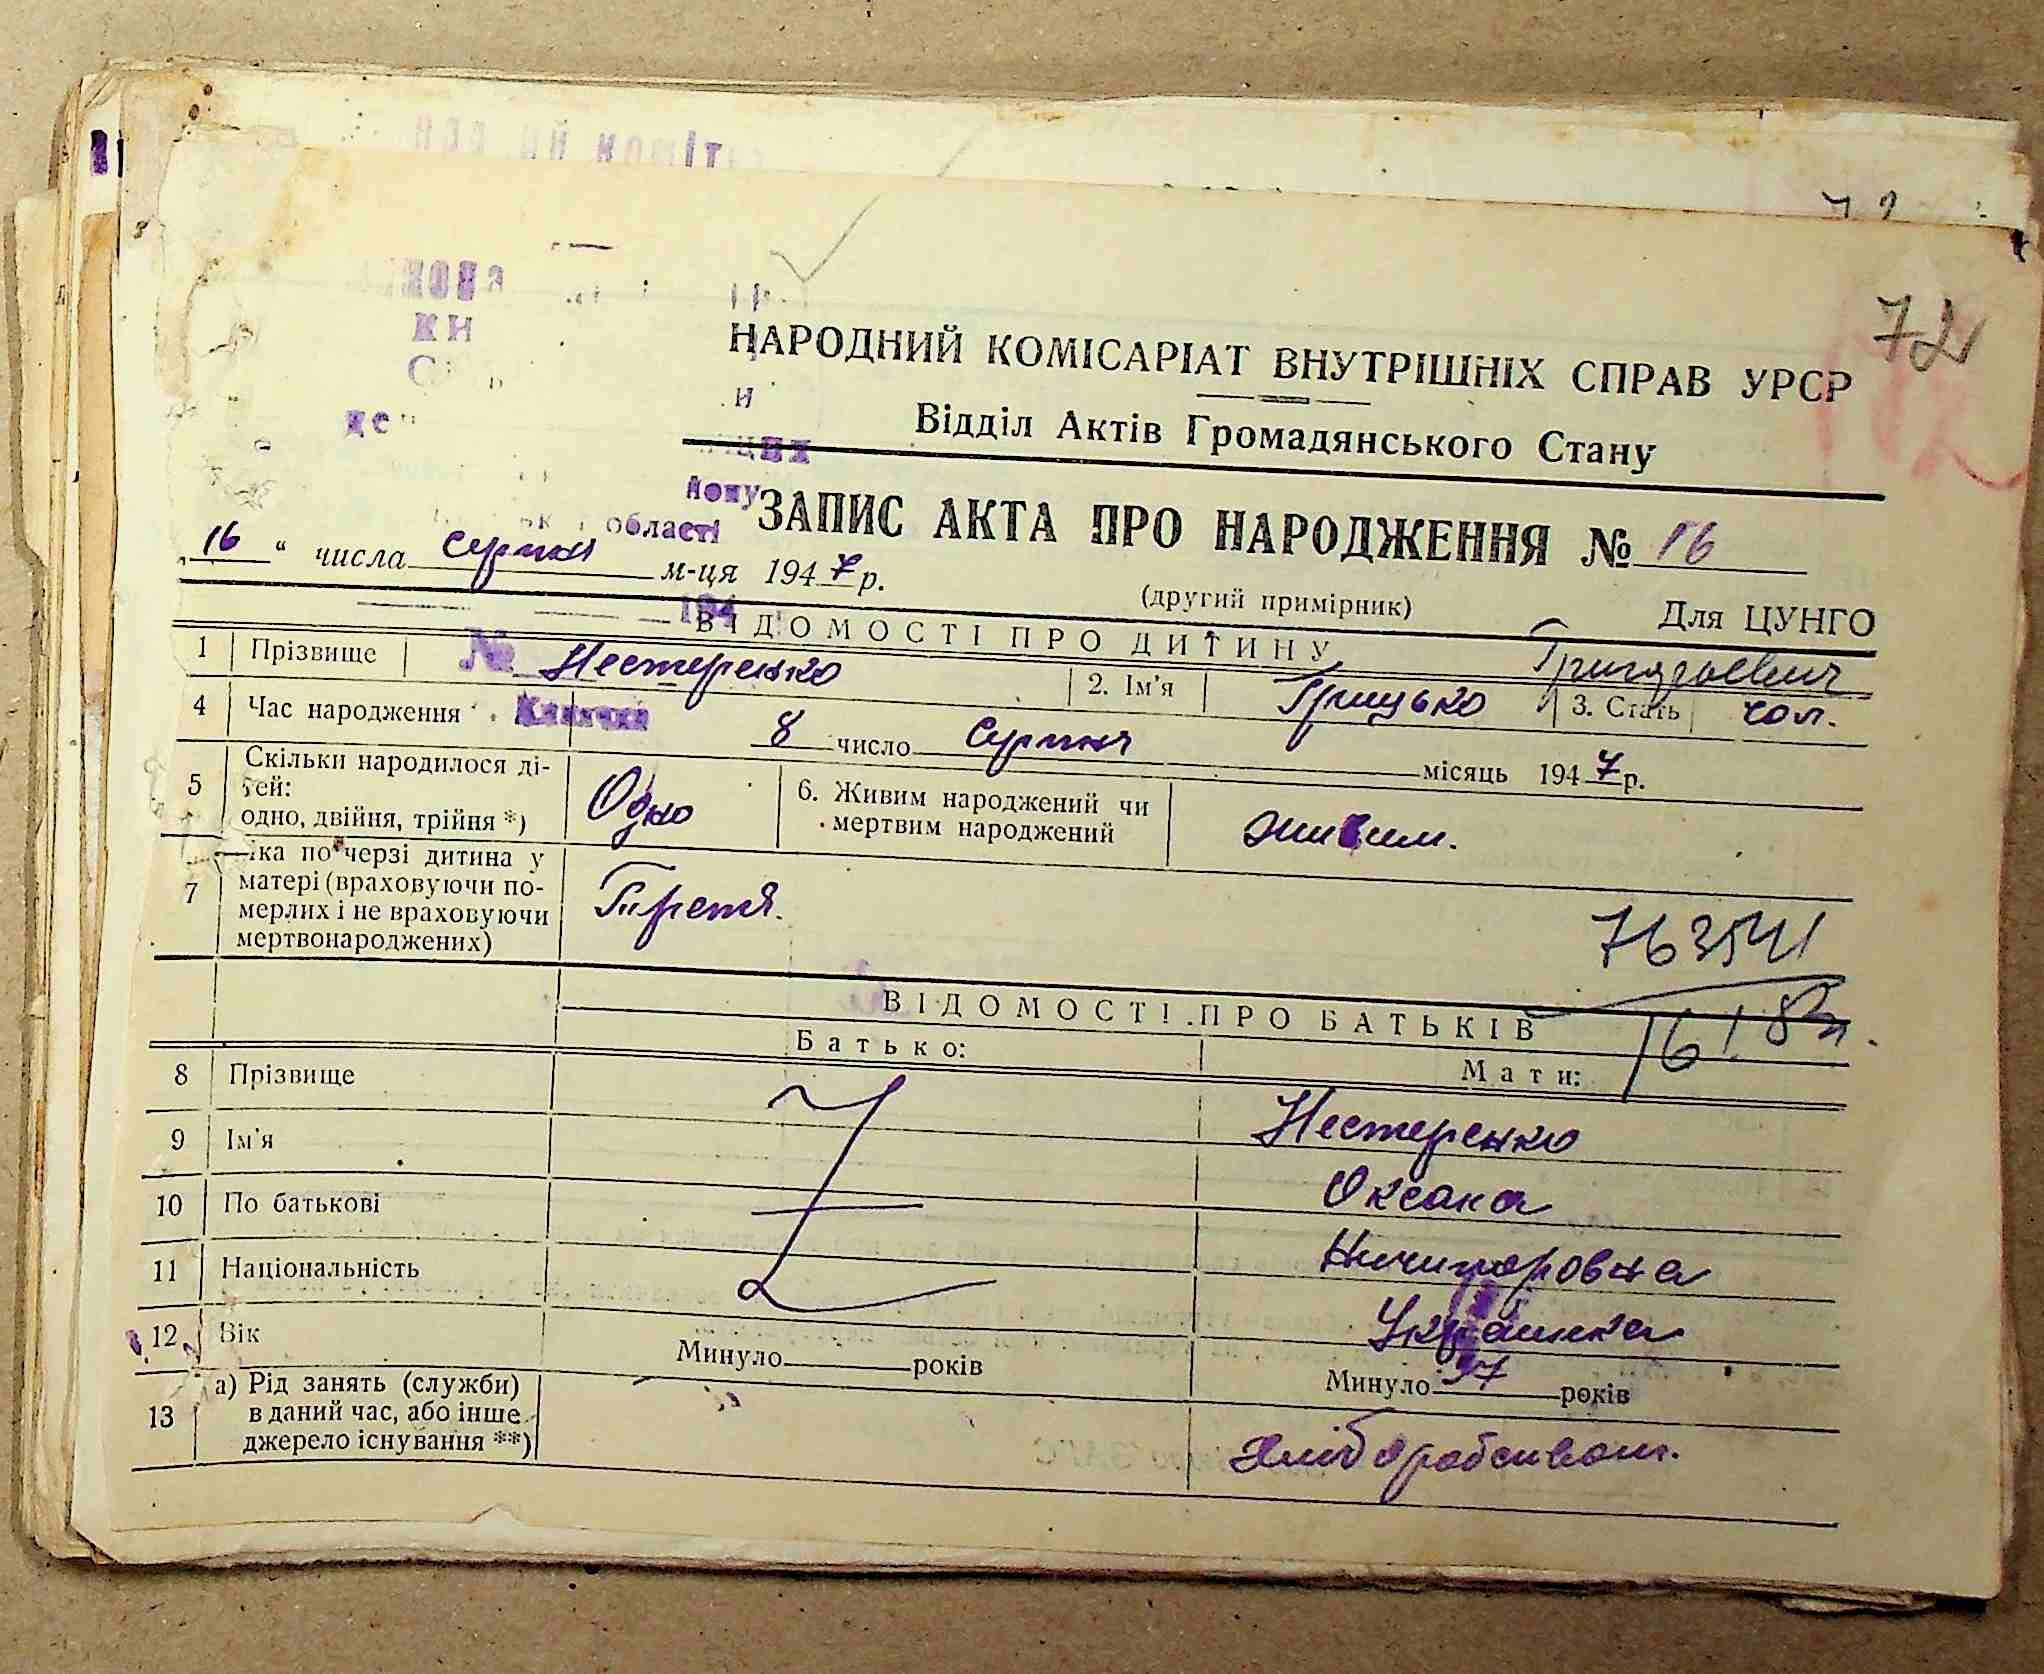 72
НАРОДНИЙ КОМІСАРІАТ ВНУТРІШНІХ СПРАВ УРСР
Відділ Актів Громадянського Стану
області
ЗАПИС АКТА ПРО НАРОДЖЕННЯ № 16
„16" числа серпня м-ця 1947 р.
(другий примірник)
Для ЦУНГО
ВІДОМОСТІ ПРО ДИТИНУ
Григорьевич
1 Прізвище № Нестеренко 2. Ім'я Грицько 3. Стать чол.
4 Час народження 8 число серпня місяць 1947 р.
5 Скільки народилося ді-
тей:
одно, двійня, трійня *)
Одно
6. Живим народжений чи
мертвим народжений
живим.
7 Яка по черзі дитина у
матері (враховуючи по-
мерлих і не враховуючи
мертвонароджених)
Третя.
763541
ВІДОМОСТІ ПРО БАТЬКІВ
Батько:
Мати:
8 Прізвище Нестеренко
9 Ім'я Оксана
10 По батькові Ничипоровна
11 Національність Українка
12 Вік Минуло років Минуло 37 років
13 а) Рід занять (служби)
в даний час, або інше
джерело існування **)